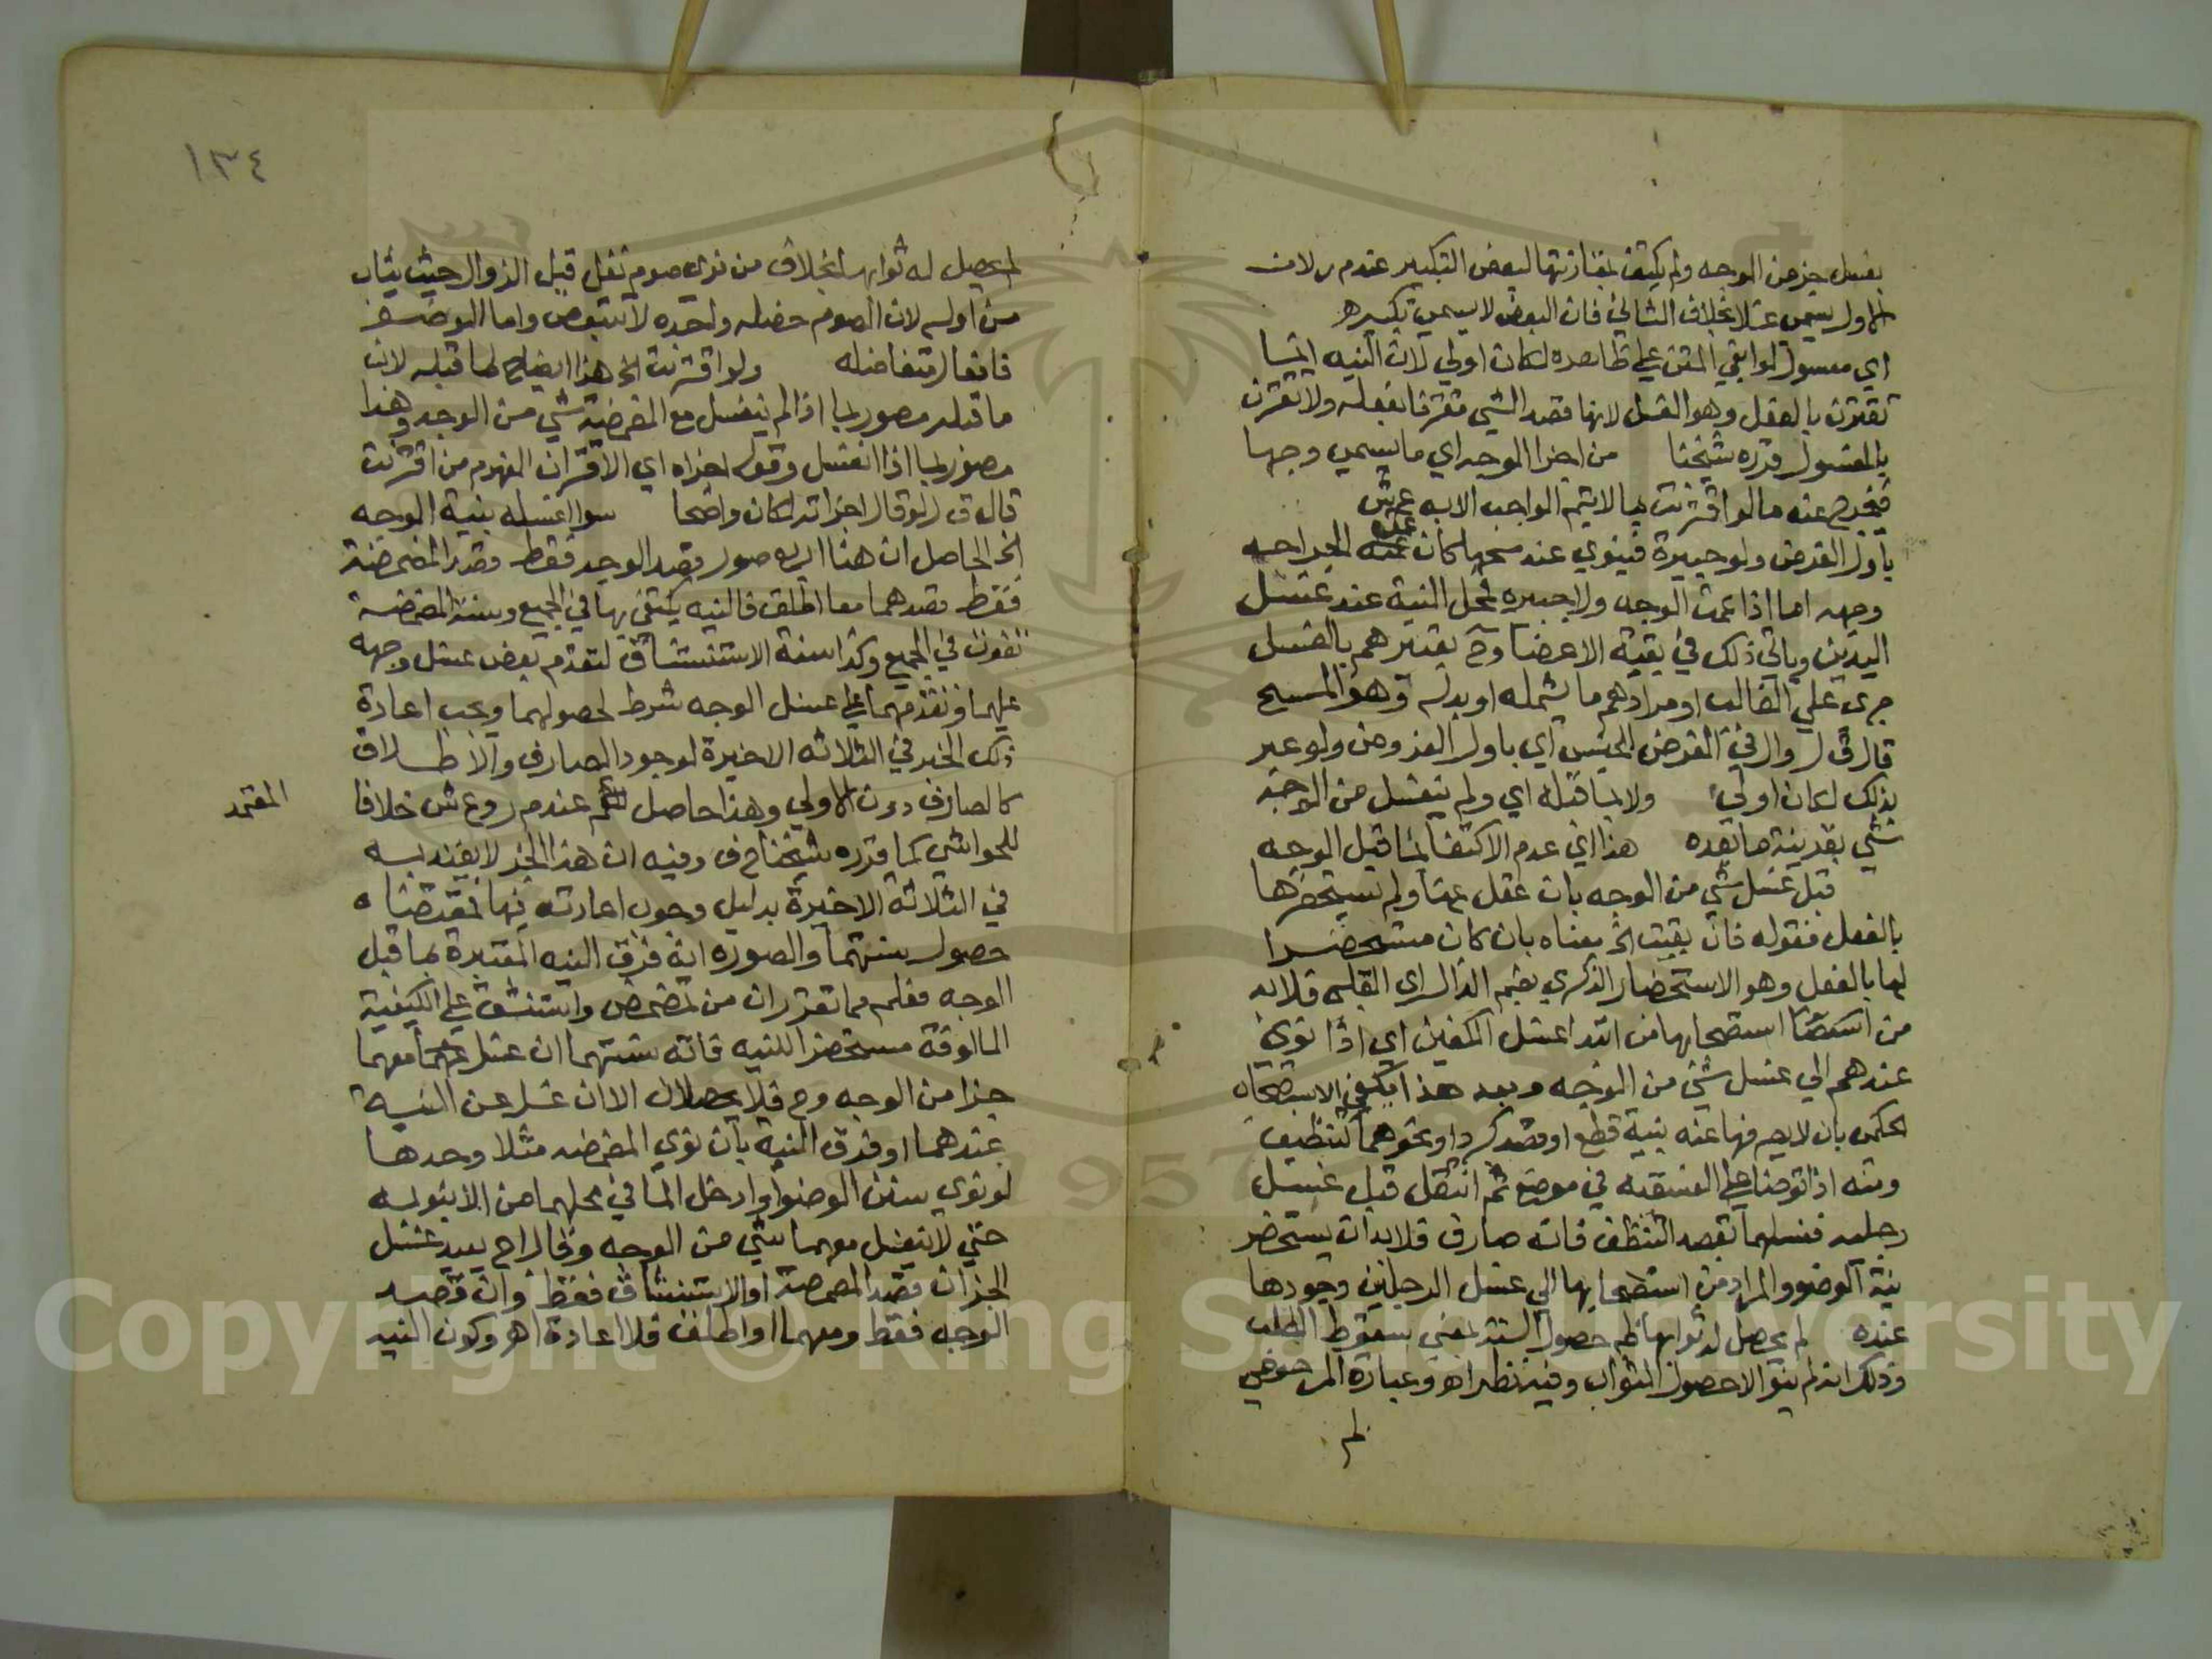 بغسل جزء من الوجه ولم يكتف بمقارنتها لبعض التكبير عند م ر لان
الاول يسمى غسلا بخلاف الثاني فان البعض لا يسمى تكبيره
اي مغسول لو ابقي المتن على ظاهره لكان اولي لان النيه انما
تقترن بالفعل وهو الغسل لانها قصد الشي مقترنا بفعله ولا تقترن
بالمغسول قرره شيخنا من اجزا الوجه اي ما يسمي وجها
فيخرج عنه ما لو اقترنت بما لا يتم الواجب الا به ع ش
باول الفرض ولو جبيرة فينوي عند مسحها كان عمت الجراحه
وجهه اما اذا عمت الوجه ولا جبيره فمحل النية عند غسل
اليدين وياتي ذلك في بقية الاعضا وح تعبيرهم بالغسل
جري علي الغالب او مرادهم ما يشمله او بدله وهو المسح
قال ق ل وال في الفرض للجنس اي باول المفروض ولو عبر
بذلك لكان اولي ولا بما قبله اي ولم ينغسل من الوجه
شي بقرينة ما بعده هذا اي عدم الاكتفا بما قبل الوجه
قبل غسل شي من الوجه بان غفل عنها ولم يستحضرها
بالفعل فقوله فان بقيت الخ معناه بان كان مستحضرا
لها بالفعل وهو الاستحضار الذكري بضم الذال اي القلبي فلا بد
من استصحابها من ابتدا غسل الكفين اي اذا نوي
عندهما الي غسل شي من الوجه وبعد هذا يكفي الاستصحاب
الحكمي بان لا يصرفها عنه بنية قطع او قصد تبرد او نحوهما كتنظيف
ومنه اذا توضا على الفسقيه في موضع ثم انتقل قبل غسل
رجليه فغسلهما بقصد التنظف فانه صارف فلا بد ان يستحضر
نية الوضوء والمراد من استصحابها الي غسل الرجلين وجودها
عنده لم يحصل له ثوابها ظم حصول السنة بمعني سقوط الطلب
وذلك انه لم ينو الا حصول الثواب وفيه نظر اه وعبارة المرحومي
لم
١٣٤
لم يحصل له ثوابها بخلاف من نوى صوم نفل قبل الزوال حيث يثاب
من اوله لان الصوم خصله واحده لا تتبعض واما الوضوء
فافعال متفاصله ولو اقترنت الخ هذا ايضاح لما قبله لان
ما قبله مصور بما اذا لم ينغسل مع المضمضة شي من الوجه وهذا
مصور بما اذا انغسل وقوله اجزاه اي الاقتران المفهوم من اقترنت
قال ق ل لو قال اجزاته لكان واضحا سوا غسله بنية الوجه
الخ الحاصل ان هنا اربع صور قصد الوجه فقط وقصد المضمضة
فقط قصدهما معا اطلق فالنيه يكتفي بها في الجميع وسنة المضمضة
تفوت في الجميع وكذا سنة الاستنشاق لتقدم بعض غسل وجهه
عليهما وتقدمهما على غسل الوجه شرط لحصولهما ويجب اعادة
ذلك الجزء في الثلاثه الاخيرة لوجود الصارف والاطلاق
كالصارف دون الاولي وهذا حاصل عند م ر وع ش خلافا
المعتمد
للحواشي كما قرره شيخنا ح ف وفيه ان هذا الجزء لا يعتد به
في الثلاثة الاخيرة بدليل وجوب اعادته فيها فمقتضاه
حصول سنتهما والصوره انه فرق النيه المعتبرة بما قبل
الوجه فعلم مما تقرر ان من تمضمض واستنشق على الكيفية
المالوفة مستحضرا للنيه فاته سنتهما ان غسل معهما
جزا من الوجه وح فلا يحصلان الا ان غفل عن النية
عندهما او فرق النية بان نوي المضمضه مثلا وحدها
او نوي سنن الوضوء او ادخل الما في محلهما من الانبوبه
حتي لا ينغسل معهما شي من الوجه وقال اح يعيد غسل
الجزء ان قصد المضمضة او الاستنشاق فقط وان قصد
الوجه فقط ومعهما او اطلق فلا اعادة اهـ وكون النيه
Copyright © King Saud University
1957